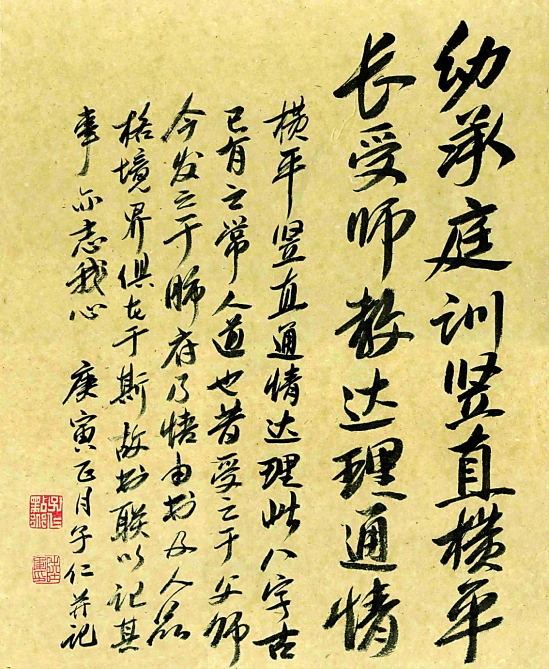 幼承庭训竖直横平
长受师教达理通情
横平竖直通情达理此八字古
已有之常人道也昔受之于父师
今发之于肺府乃悟由书及人品
格境界俱在于斯故书联以记其
事亦志我心 庚寅正月子仁并记